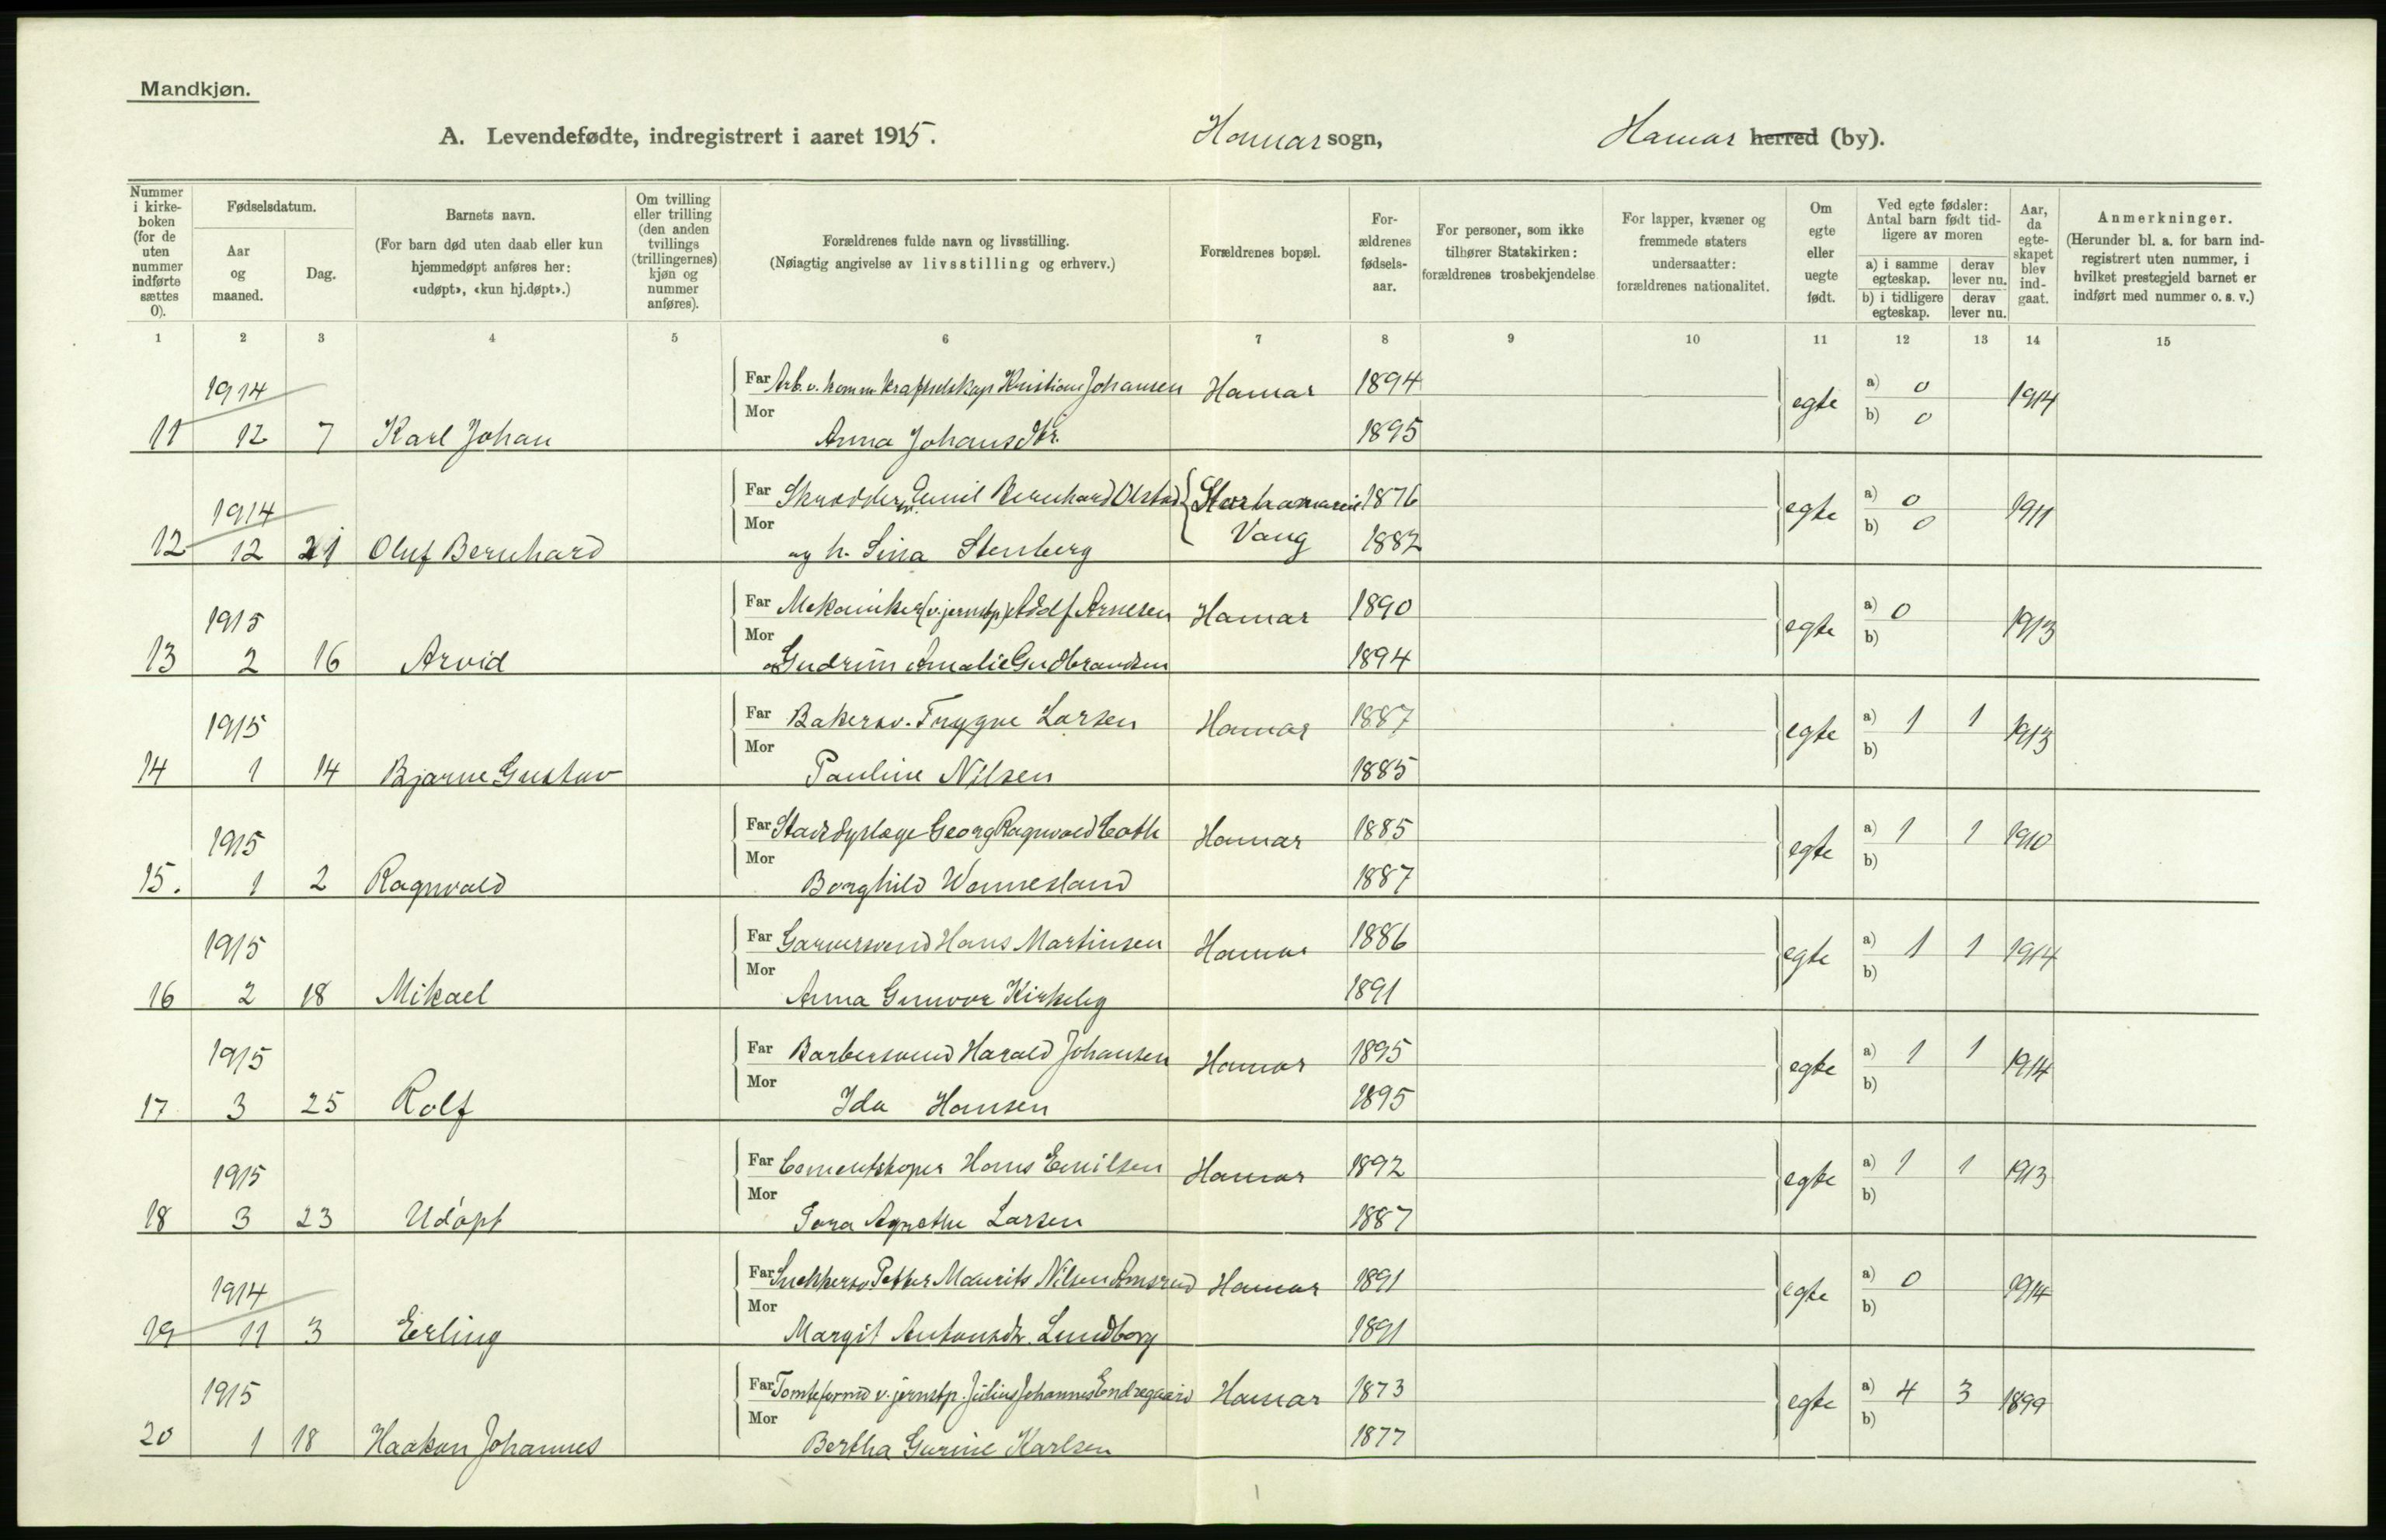 Mandkjøn.
A. Levendefødte, indregistrert i aaret 1915. Hamar sogn, Hamar herred (by).
Nummer i kirkeboken (for de uten nummer indførte sættes 0).
Fødselsdatum.
Aar og maaned.
Dag.
Barnets navn.
(For barn død uten daab eller kun hjemmedøpt anføres her: «udøpt», «kun hj.døpt».)
Om tvilling eller trilling (den anden tvillings (trillingernes) kjøn og nummer anføres).
Forældrenes fulde navn og livsstilling.
(Nøiagtig angivelse av livsstilling og erhverv.)
Forældrenes bopæl.
Forældrenes fødselsaar.
For personer, som ikke tilhører Statskirken: forældrenes trosbekjendelse
For lapper, kvæner og fremmede staters undersaatter: forældrenes nationalitet.
Om egte eller uegte født.
Ved egte fødsler: Antal barn født tidligere av moren
a) i samme egteskap. derav lever nu.
b) i tidligere egteskap. derav lever nu.
Aar, da egteskapet blev indgaat.
Anmerkninger.
(Herunder bl. a. for barn indregistrert uten nummer, i hvilket prestegjeld barnet er indført med nummer o. s. v.)
1 2 3 4 5 6 7 8 9 10 11 12 13 14 15
1914 Far Arb. v. komm. Kristian Johansen Hamar 1894 egte a) 0 1914
11 12 7 Karl Johan Mor Anna Johansdtr. 1895 b) 0
1914 Far Skrædderm. Emil Bernhard Olstad Storhamarei 1876 egte a) 0 1911
12 12 21 Oluf Bernhard Mor og h. Lina Stenberg Vang 1882 b) 0
1915 Far Mekaniker (v. jernstp) Adolf Arnesen Hamar 1890 egte a) 0 1913
13 2 16 Arvid Mor og Gudrun Amalie Gudbrandsen 1894 b)
1915 Far Bakersv. Trygve Larsen Hamar 1887 egte a) 1 1 1913
14 1 14 Bjarne Gustav Mor Pauline Nilsen 1885 b)
1915 Far Stadsdyrlæge Georg Ragnvald Coth Hamar 1885 egte a) 1 1 1910
15. 1 2 Ragnvald Mor Borghild Wannesland 1887 b)
1915 Far Garversvend Hans Martinsen Hamar 1886 egte a) 1 1 1914
16 2 18 Mikael Mor Anna Gunvor Kirkeby 1891 b)
1915 Far Barbersvend Harald Johansen Hamar 1895 egte a) 1 1 1914
17 3 25 Rolf Mor Ida Hansen 1895 b)
1915 Far Cementstøper Hans Emilsen Hamar 1892 egte a) 1 1 1913
18 3 23 Udøpt Mor Agnethe Larsen 1887 b)
1914 Far Snekkersv. Petter Mauritz Nilsen Amsrud Hamar 1891 egte a) 0 1914
19 11 3 Erling Mor Margit Antonsdtr. Lundborg 1891 b)
1915 Far Tomteformd v. jernstp. Julius Johannes Endregaard Hamar 1873 egte a) 4 3 1899
20 1 18 Haakon Johannes Mor Bertha Gurine Karlsen 1877 b)